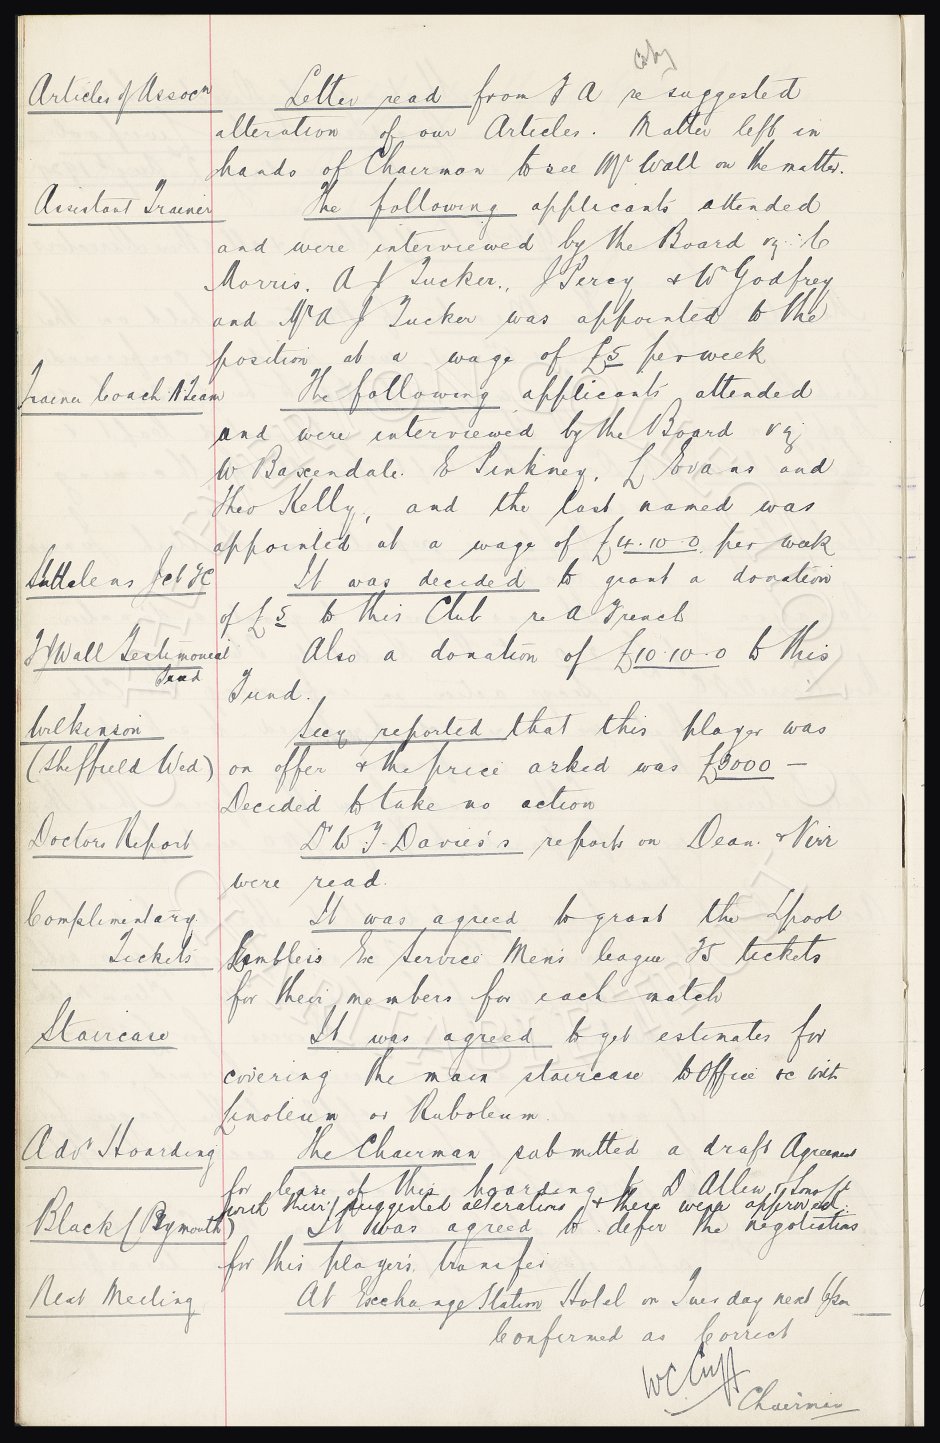 Articles of Assocn
Letter read from F A re suggested
alteration of our Articles. Matter left in
hands of Chairman to see Mr Wall on the matter.
Assistant Trainer
The following applicants attended
and were interviewed by the Board viz: C
Morris, A J Tucker, J Percy & W Godfrey
and Mr A J Tucker was appointed to the
position at a wage of £5 per week
Trainer Coach A Team
The following applicants attended
and were interviewed by the Board viz
W Baxendale. E Pinkney, L Evans and
Theo Kelly, and the last named was
appointed at a wage of £4.10.0 per week
It was decided to grant a donation
of £5 to this Club re A French
F J Wall Testimonial
Fund
Also a donation of £10.10.0 to this
Fund.
Wilkinson
(Sheffield Wed)
Secy reported that this player was
on offer & the price asked was £3000 —
Decided to take no action
Doctors Report
Dr W F. Davies's reports on Dean & Virr
were read.
Complimentary
Tickets
It was agreed to grant the Lpool
Limbless Ex Service Mens league 75 tickets
for their members for each match
Staircase
It was agreed to get estimates for
covering the main staircase to Office &c with
Linoleum or Ruboleum.
Advt Hoarding
The Chairman submitted a draft Agreement
for lease of this hoarding to D Allen & Sons
with their suggested alterations & these were approved.
Black (Plymouth)
It was agreed to defer the negotiations
for this players transfer
Next Meeting
At Exchange Station Hotel on Tuesday next 6pm
Confirmed as Correct
W C Cuff
Chairman